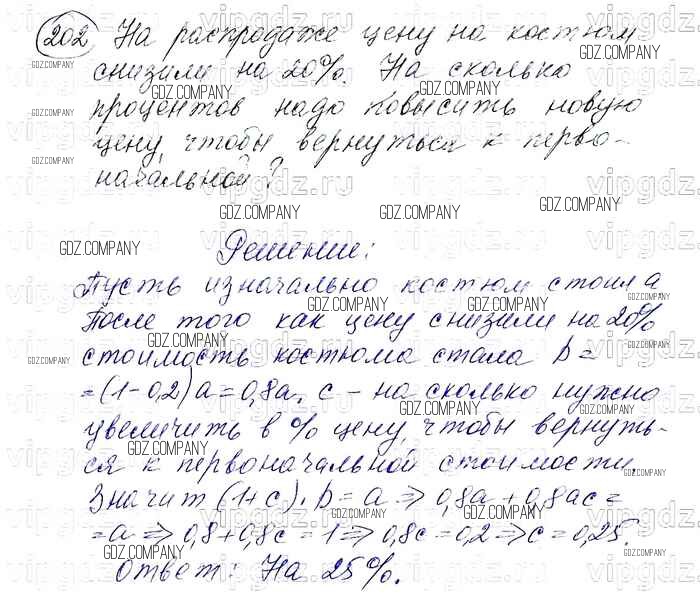 202 На распродаже цену на костюм
снизили на 20%. На сколько
процентов надо повысить новую
цену, чтобы вернуться к перво-
начальной?
Решение:
Пусть изначально костюм стоил a.
После того как цену снизили на 20%
стоимость костюма стала b =
= (1-0,2)a = 0,8a. c - на сколько нужно
увеличить в % цену, чтобы вернуть-
ся к первоначальной стоимости,
Значит (1+c)·b = a ⇒ 0,8a + 0,8ac =
= a ⇒ 0,8 + 0,8c = 1 ⇒ 0,8c = 0,2 ⇒ c = 0,25.
Ответ: На 25%.
GDZ.COMPANY
vipgdz.ru